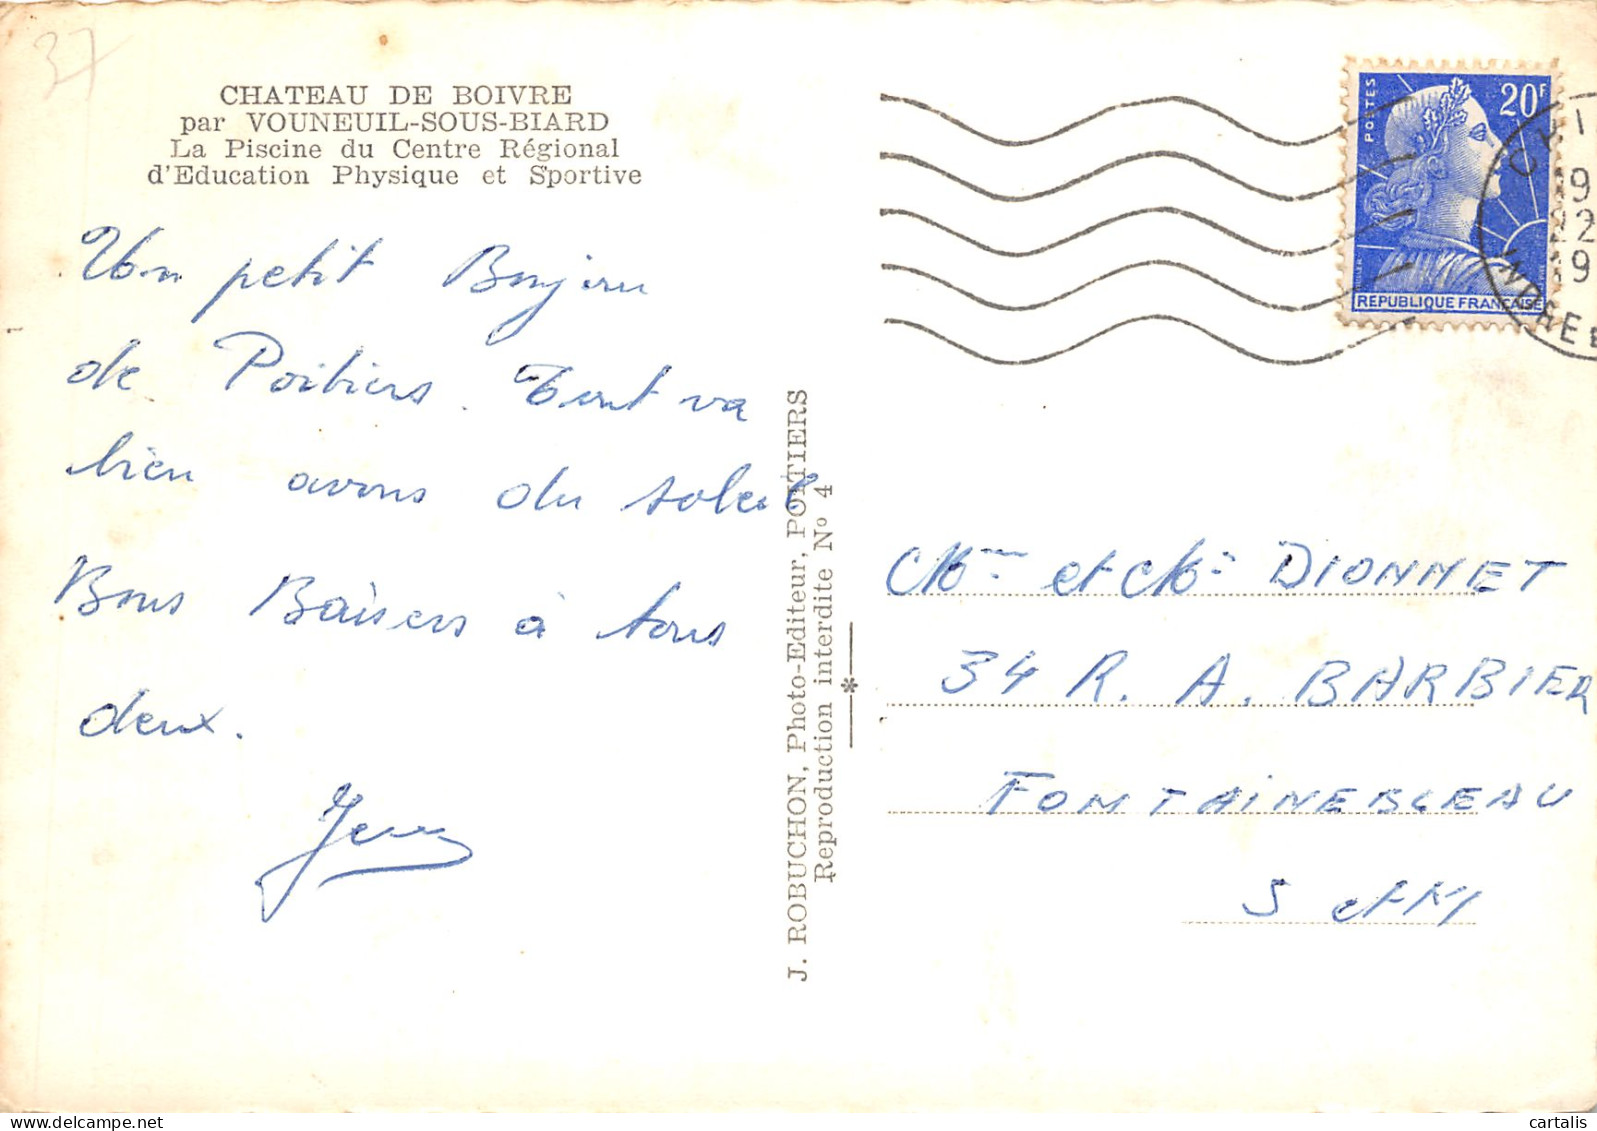 37
CHATEAU DE BOIVRE
par VOUNEUIL-SOUS-BIARD
La Piscine du Centre Régional
d'Education Physique et Sportive
Un petit Bonjour
de Poitiers. Tout va
bien avons du soleil
Bons Baisers à tous
deux.
J. ROBUCHON, Photo-Editeur, POITIERS
Reproduction interdite Nº 4
POSTES
20F
REPUBLIQUE FRANÇAISE
CHI
19
22
19
INDRE E
Mme et Mr DIONNET
34 R. A. BARBIER
FONTAINEBLEAU
S et M
cartalis